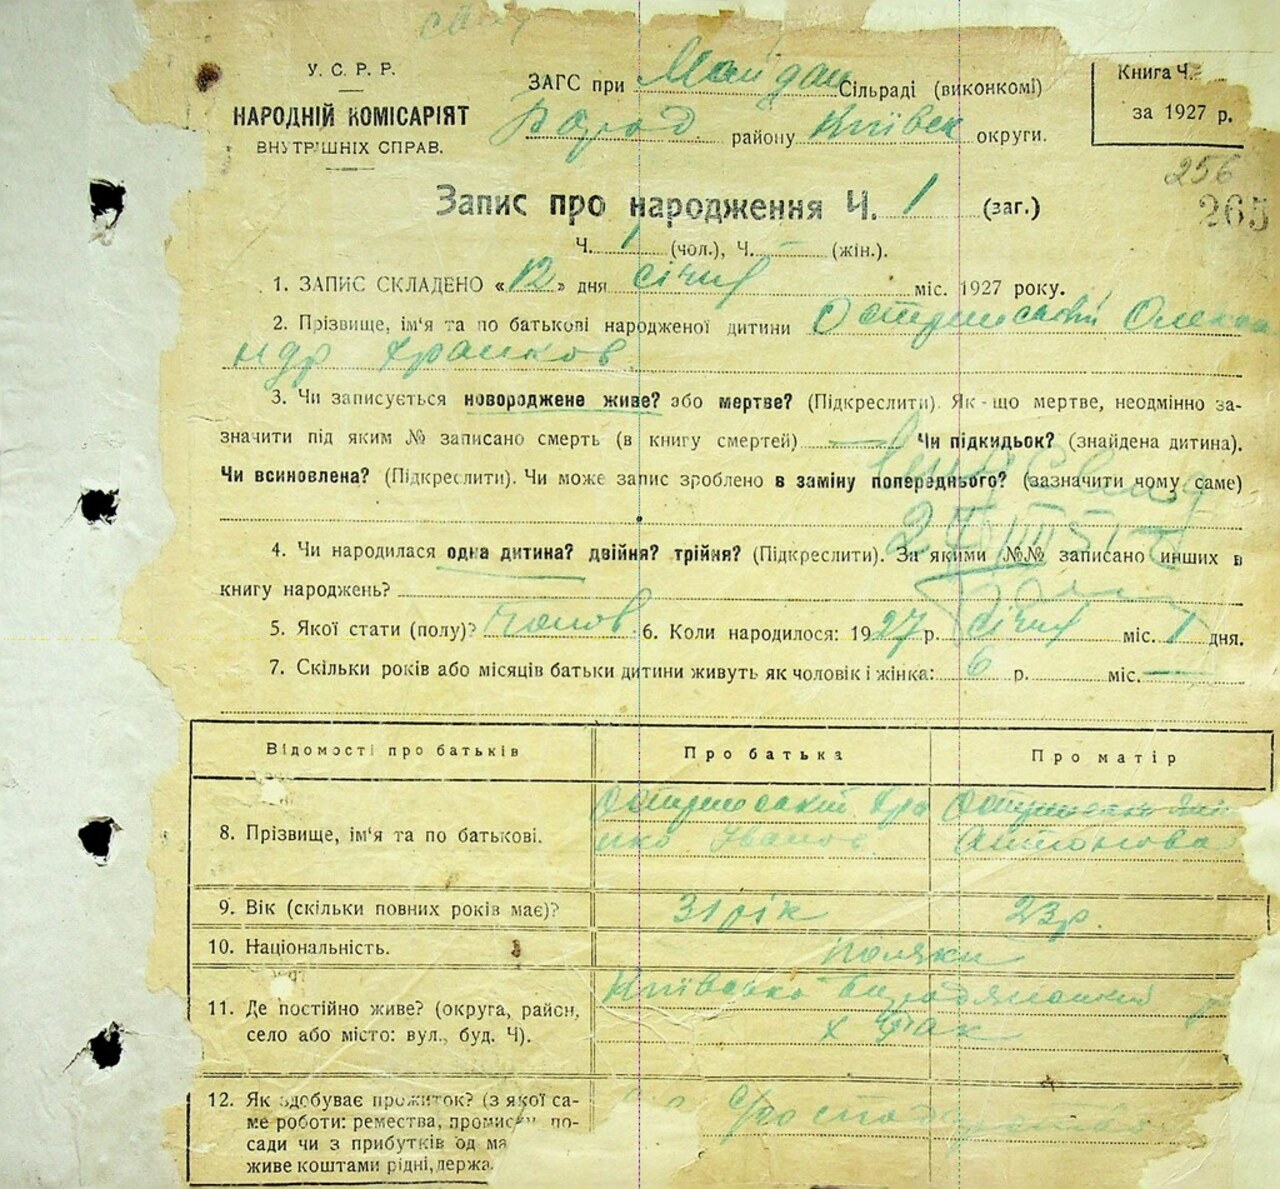 У. С. Р. Р.
НАРОДНІЙ КОМІСАРІЯТ
ВНУТРІШНІХ СПРАВ.
ЗАГС при Майдан Сільраді (виконкомі)
Бород. району Київськ округи.
Книга Ч.
за 1927 р.
256
265
Запис про народження Ч. 1 (заг.)
Ч. 1 (чол.), Ч. — (жін.).
1. ЗАПИС СКЛАДЕНО «12» дня січня міс. 1927 року.
2. Прізвище, ім'я та по батькові народженої дитини Олекса
ндр Франков.
3. Чи записується новороджене живе? або мертве? (Підкреслити). Як-що мертве, неодмінно за-
значити під яким № записано смерть (в книгу смертей) — Чи підкидьок? (знайдена дитина).
Чи всиновлена? (Підкреслити). Чи може запис зроблено в заміну попереднього? (зазначити чому саме)
4. Чи народилася одна дитина? двійня? трійня? (Підкреслити). За якими №№ записано инших в
книгу народжень?
5. Якої стати (полу)? 6. Коли народилося: 1927 р. січня міс. 1 дня.
7. Скільки років або місяців батьки дитини живуть як чоловік і жінка: 6 р. міс. —
Відомості про батьків Про батька Про матір
8. Прізвище, ім'я та по батькові. Фра
нко Іванов Антонова
9. Вік (скільки повних років має)? 31 рік 23 р.
10. Національність. поляки
11. Де постійно живе? (округа, район, Київсько Бородянський
село або місто: вул., буд. Ч). х
12. Як здобуває прожиток? (з якої са-
ме роботи: ремества, промислу, по-
сади чи з прибутків од ма
живе коштами рідні, держа.